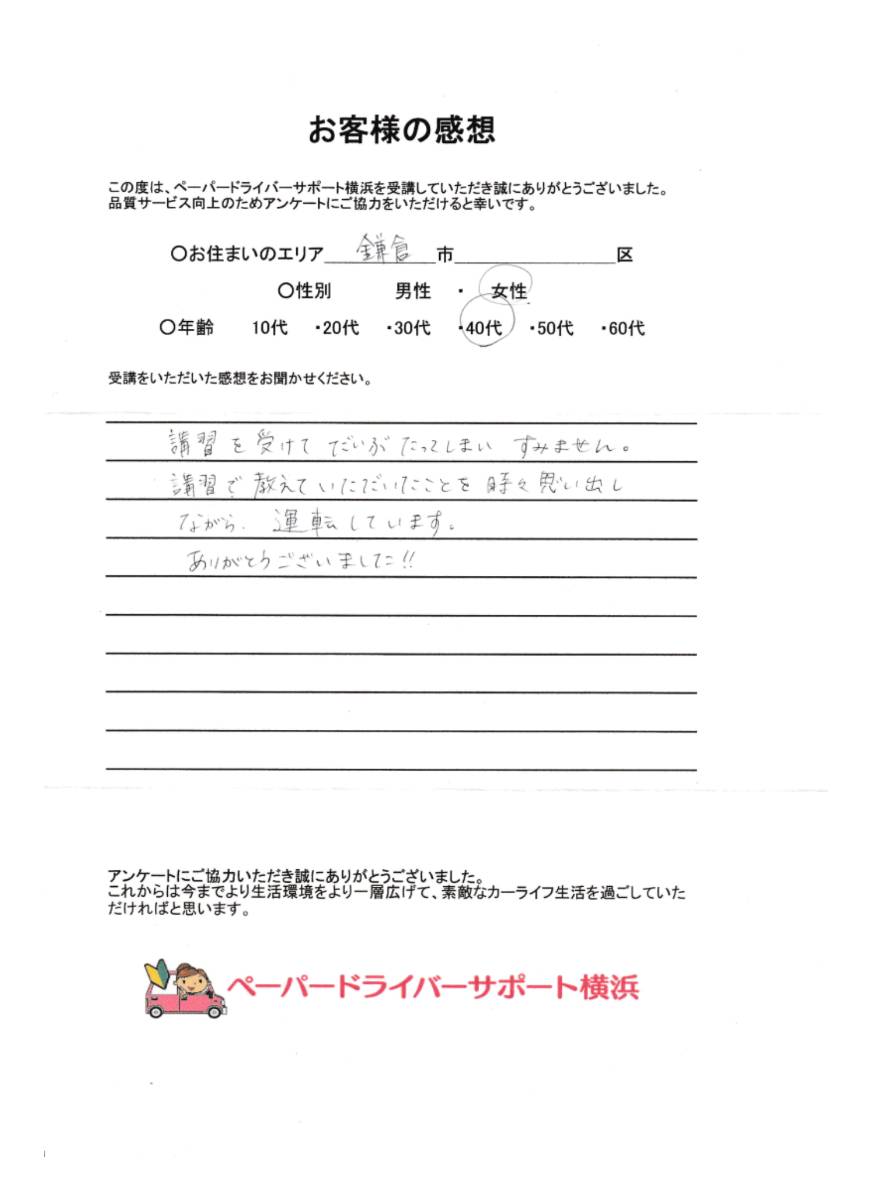 お客様の感想
この度は、ペーパードライバーサポート横浜を受講していただき誠にありがとうございました。
品質サービス向上のためアンケートにご協力をいただけると幸いです。
〇お住まいのエリア 鎌倉 市 区
〇性別 男性 ・ 女性
〇年齢 10代 ・20代 ・30代 ・40代 ・50代 ・60代
受講をいただいた感想をお聞かせください。
講習を受けて だいぶ たってしまい すみません。
講習で 教えていただいたことを 時々 思い出し
ながら、運転しています。
ありがとうございました!!
アンケートにご協力いただき誠にありがとうございました。
これからは今までより生活環境をより一層広げて、素敵なカーライフ生活を過ごしていた
だければと思います。
ペーパードライバーサポート横浜